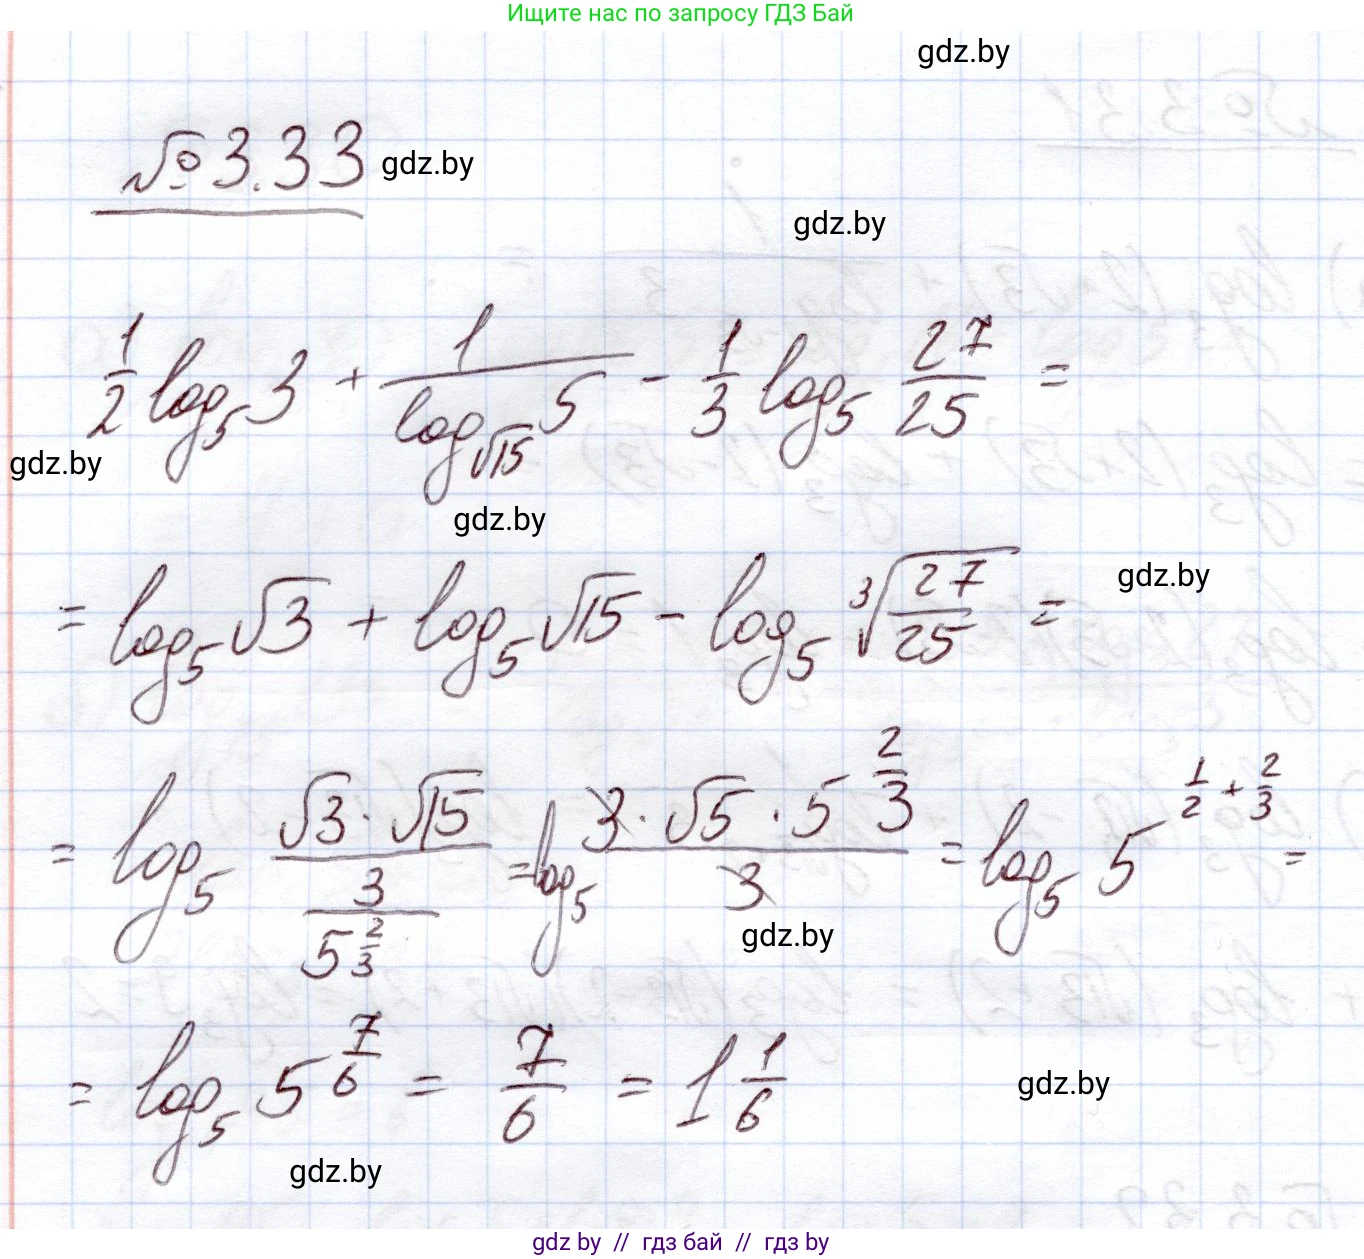 Ищите нас по запросу ГДЗ Бай
gdz.by
№ 3.33 gdz.by
gdz.by
1/2 log₅ 3 + 1/(log_√15 5) - 1/3 log₅ 27/25 =
gdz.by
gdz.by
gdz.by
= log₅ √3 + log₅ √15 - log₅ ∛(27/25) =
= log₅ (√3 · √15)/(3/5^(2/3)) = log₅ (3 · √5 · 5^(2/3))/3 = log₅ 5^(1/2 + 2/3) =
gdz.by
= log₅ 5^(7/6) = 7/6 = 1 1/6
gdz.by
gdz.by
gdz by // гдз бай // гдз by